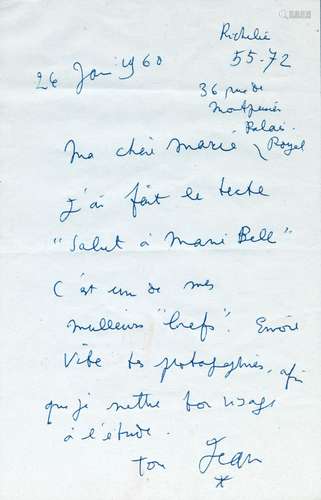 Richelieu
55-72
26 Jan 1960
36 rue de
Montpensier
Palais-
Royal
Ma chère Marie
J'ai fait le texte
"Salut à Marie Bell"
C'est un de mes
meilleurs "brefs". Envoie
vite tes photographies, afin
que je mette ton visage
à l'étude.
ton Jean